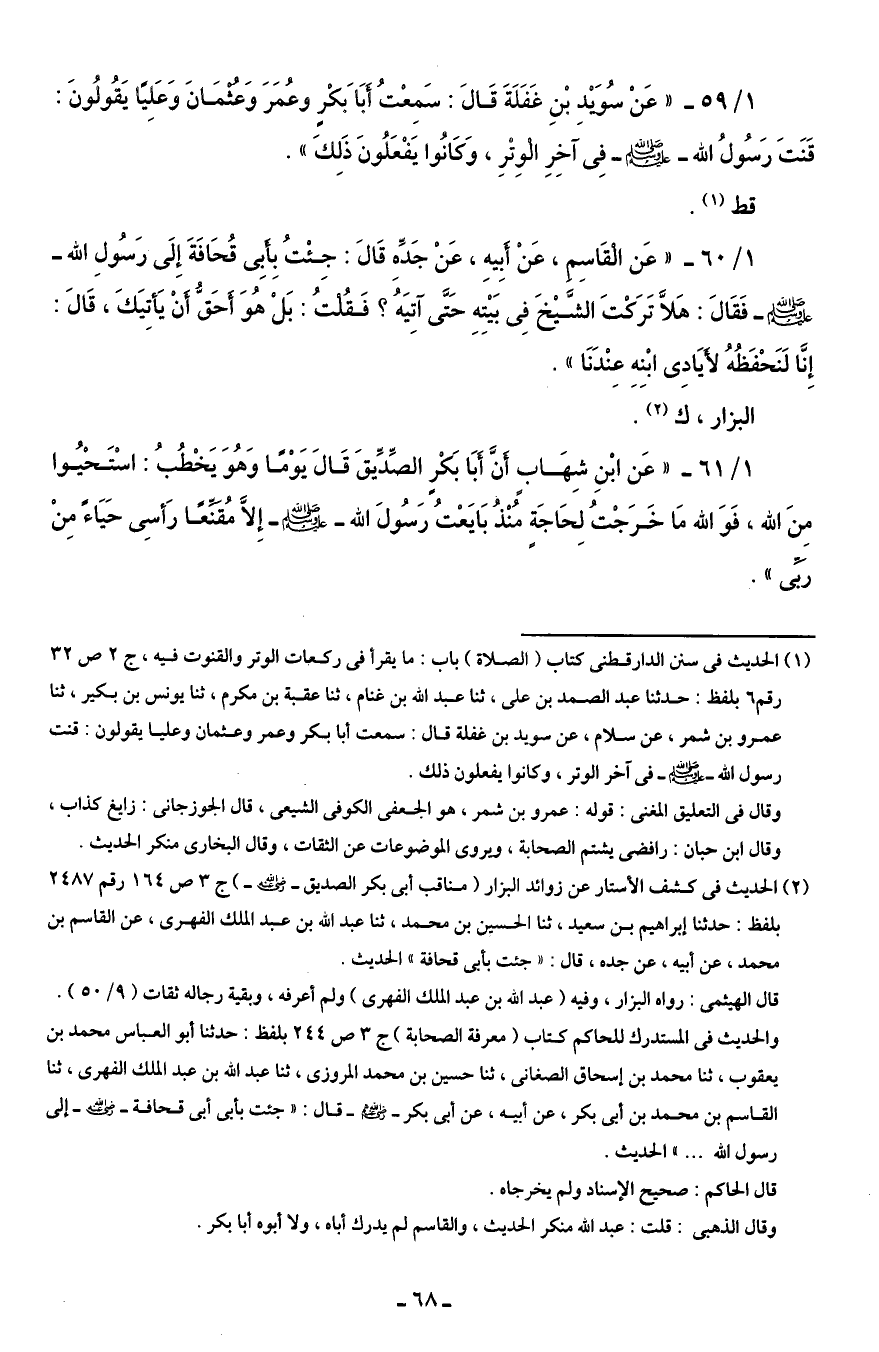 ١/ ٥٩ ـ « عَنْ سُوَيْدِ بْنِ غَفَلَةَ قَـالَ : سَمِعْتُ أَبَا بَكْرٍ وعُمَرَ وَعُثْمَـانَ وَعَلِيًا يَقُولُونَ :
قَنَتَ رَسُولُ الله ـ ﷺ ـ فِى آخِرِ الْوِتْرِ ، وَكَانُوا يَفْعَلُونَ ذَلِكَ » .
قط (١) .
١/ ٦٠ ـ « عَنِ الْقَاسِمِ ، عَنْ أَبِيهِ ، عَنْ جَدِّهِ قَالَ : جِـئْتُ بِأَبِى قُحَافَةَ إِلَى رَسُولِ الله ـ
ﷺ ـ فَقَالَ : هَلاَّ تَرَكْتَ الشَّـيْخَ فِى بَيْتِهِ حَتَّى آتِيَهُ ؟ فَـقُلْتُ : بَلْ هُوَ أَحَقُّ أَنْ يَأتِيَكَ ، قَالَ :
إِنَّا لَنَحْفَظُهُ لأَيَادِى ابْنِهِ عِنْدَنَا » .
البزار ، ك (٢) .
١/ ٦١ ـ « عَن ابْنِ شِهَـابٍ أَنَّ أَبَا بَكْرٍ الصِّدِّيقَ قَـالَ يَوْمًـا وَهُوَ يَخْطُبُ : اسْتَـحْيُـوا
مِنَ الله ، فَوَ الله مَا خَـرَجْتُ لِحَاجَةٍ مُنْذُ بَايَعْتُ رَسُولَ الله ـ ﷺ ـ إِلاَّ مُقَنِّعًـا رَأسِى حَيَاءً مِنْ
رَبِّى » .
(١) الحديث فى سنن الدارقـطنى كتاب ( الصـلاة ) باب : ما يقرأ فى ركـعات الوتر والقنوت فيه ، ج ٢ ص ٣٢
رقم٦ بلفظ : حـدثنا عبد الصـمد بن على ، ثنا عبـد الله بن غنام ، ثنا عقبـة بن مكرم ، ثنا يونس بن بكير ، ثنا
عمـرو بن شمر ، عن سـلام ، عن سويد بن غفلة قـال : سمعت أبا بـكر وعمر وعـثمان وعليـا يقولون : قنت
رسول الله ـ ﷺ ـ فى آخر الوتر ، وكانوا يفعلون ذلك .
وقال فى التعليق المغنى : قوله : عمرو بن شمر ، هو الجـعفى الكوفى الشيعى ، قال الجوزجانى : زايغ كذاب ،
وقال ابن حبان : رافضى يشتم الصحابة ، ويروى الموضوعات عن الثقات ، وقال البخارى منكر الحديث .
(٢) الحديث فى كـشف الأستار عن زوائد البزار ( مـناقب أبى بكر الصديق ـ رضي الله عنه ـ ) ج ٣ ص ١٦٤ رقم ٢٤٨٧
بلفظ : حدثنا إبراهيم بـن سعيد ، ثنا الحـسين بن مـحمد ، ثنا عبد الله بن عـبد الملك الفهـرى ، عن القاسم بن
محمد ، عن أبيه ، عن جده ، قال : « جئت بأبى قحافة » الحديث .
قال الهيثمى : رواه البزار ، وفيه ( عبد الله بن عبد الملك الفهرى ) ولم أعرفه ، وبقية رجاله ثقات ( ٩/ ٥٠ ) .
والحديث فى المستدرك للحاكم كـتاب ( معرفة الصحابة ) ج ٣ ص ٢٤٤ بلفظ : حدثنا أبو العـباس محمد بن
يعقوب ، ثنا محمد بن إسحاق الصغانى ، ثنا حسين بن محمد المروزى ، ثنا عبد الله بن عبد الملك الفهرى ، ثنا
القـاسم بن مـحمد بن أبى بكر ، عن أبيـه ، عن أبى بكر ـ رضي الله عنه ـ قـال : « جئت بأبى أبى قـحافـة ـ رضي الله عنه ـ إلى
رسول الله ... » الحديث .
قال الحاكم : صحيح الإسناد ولم يخرجاه .
وقال الذهبى : قلت : عبد الله منكر الحديث ، والقاسم لم يدرك أباه ، ولا أبوه أبا بكر .
ـ ٦٨ ـ